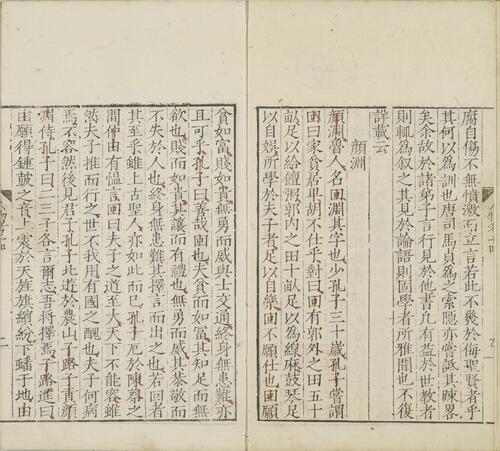 腐自傷不無憤激而立言若此不幾於侮聖賢者乎
其何以為訓也唐司馬貞為之索隱亦嘗詆其踈畧
矣余故於諸弟子言行見於他書凡有益於世教者
則輒為叙之其見於論語則固學者所雅聞也不復
詳載云
顏淵
顏淵魯人名回淵其字也少孔子三十歲孔子嘗謂
回曰家貧居卑胡不仕乎對曰回有郭外之田五十
畝足以給饘粥郭內之田十畝足以為絲麻鼓琴足
以自娛所學於夫子者足以自樂回不願仕也回願
貧如富賤如貴無勇而威與士交通終身無患難亦
且可乎孔子曰善哉回也夫貧而如富其知足而無
欲也賤而如貴其讓而有禮也無勇而威其恭敬而
不失於人也終身無患難其擇言而出之也若回者
其至乎雖上古聖人亦如此而已孔子厄於陳蔡之
間仲由有慍言回曰夫子之道至大天下不能容雖
然夫子推而行之世不我用有國之醜也夫子何病
焉不容然後見君子孔子北遊於農山子路子貢顏
淵侍孔子曰二三子各言爾志吾將擇焉子路進曰
由願得鍾鼓之音上震於天旌旗繽紛下蟠于地由